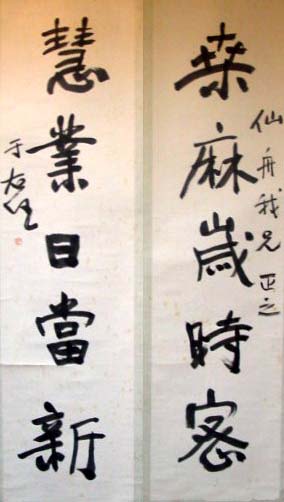 桒麻歲時密
仙舟我兄 正之
慧業日當新
于右任